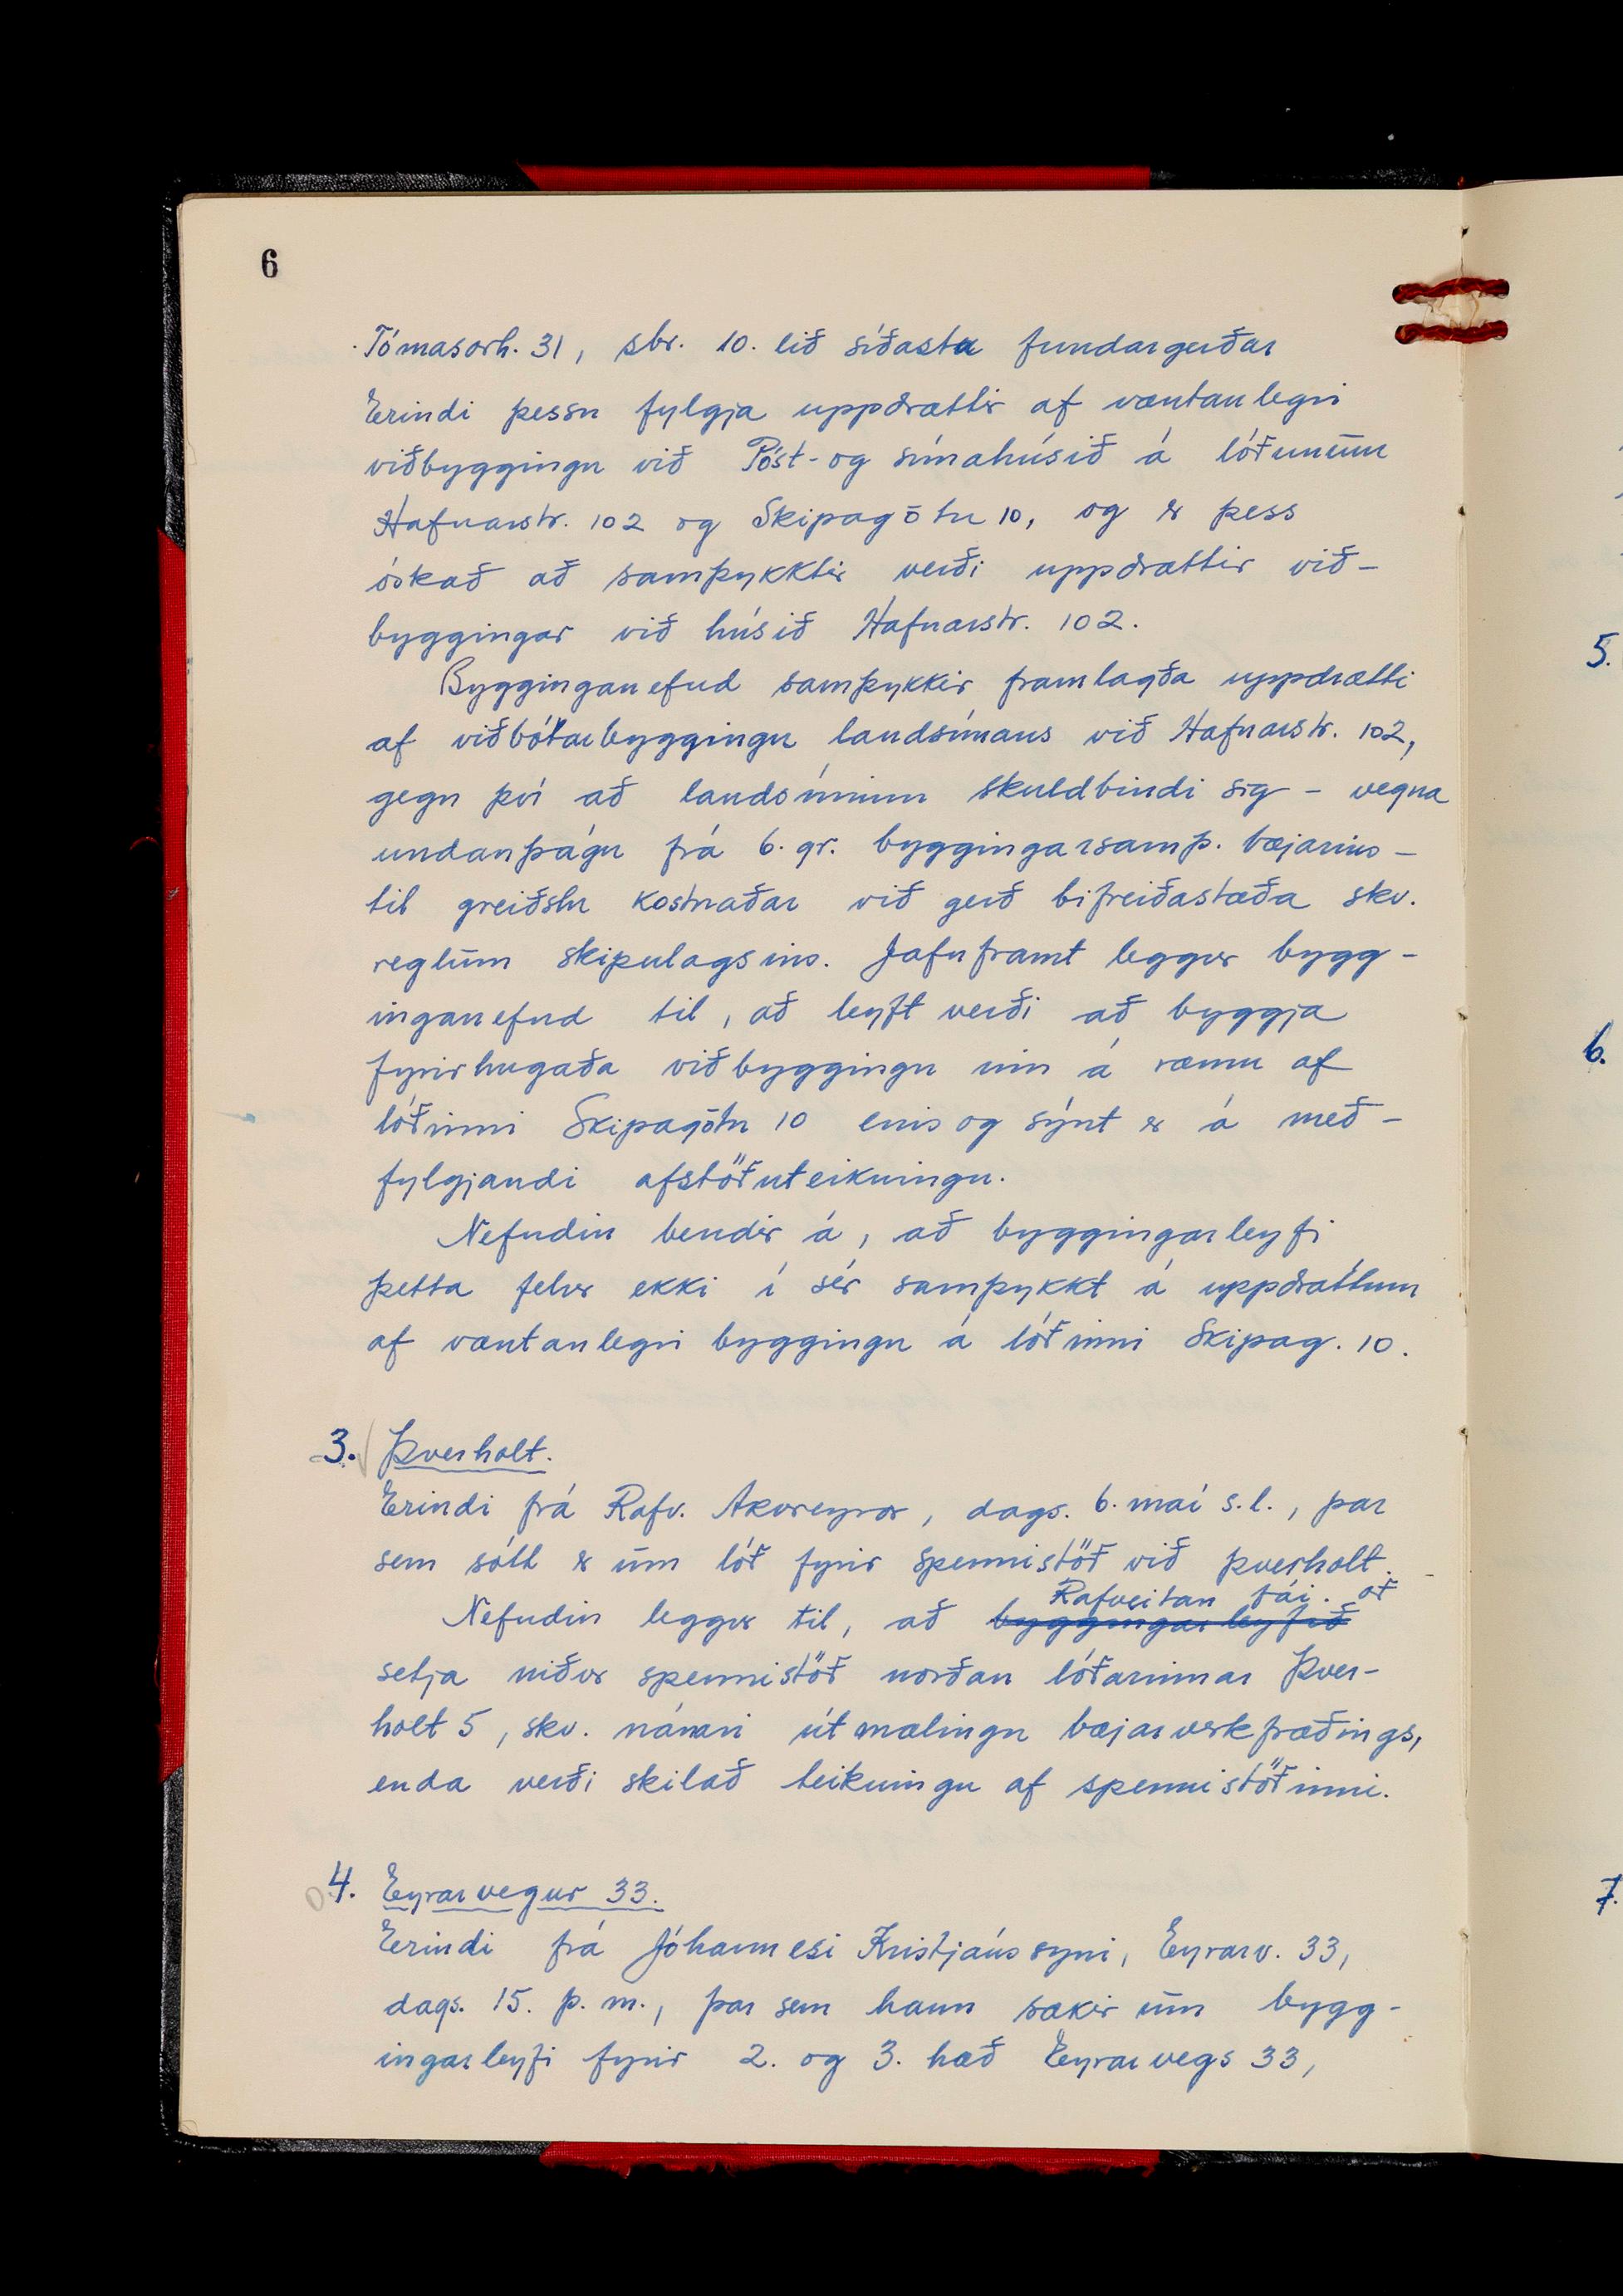 6
Tómasarh. 31, sbr. 10. lið síðasta fundargerðar
Erindi þessu fylgja uppdrættir af væntanlegri
viðbyggingu við Póst- og símahúsið á lóðunum
Hafnarstr. 102 og Skipagötu 10, og er þess
óskað að samþykktir verði uppdrættir við-
byggingar við húsið Hafnarstr. 102.
Bygginganefnd samþykkir framlagða uppdrætti
af viðbótarbyggingu landsímans við Hafnarstr. 102,
gegn því að landsíminn skuldbindi sig - vegna
undanþágu frá 6. gr. byggingarsamþ. bæjarins -
til greiðslu kostnaðar við gerð bifreiðastæða skv.
reglum skipulagsins. Jafnframt leggur bygg-
inganefnd til, að leyft verði að byggja
fyrirhugaða viðbyggingu inn á ræmu af
lóðinni Skipagötu 10 eins og sýnt er á með-
fylgjandi afstöðuteikningu.
Nefndin bendir á, að byggingarleyfi
þetta felur ekki í sér samþykkt á uppdráttum
af væntanlegri byggingu á lóðinni Skipag. 10.
3. Þverholt.
Erindi frá Rafv. Akureyrar, dags. 6. maí s.l., þar
sem sótt er um lóð fyrir spennistöð við Þverholt.
Rafveitan fái að
Nefndin leggur til, að byggingarleyfið
setja niður spennistöð norðan lóðarinnar Þver-
holt 5, skv. nánari útmælingu bæjarverkfræðings,
enda verði skilað teikningu af spennistöðinni.
4. Eyrarvegur 33.
Erindi frá Jóhannesi Kristjánssyni, Eyrarv. 33,
dags. 15. þ. m., þar sem hann sækir um bygg-
ingarleyfi fyrir 2. og 3. hæð Eyrarvegs 33,
5.
6.
7.